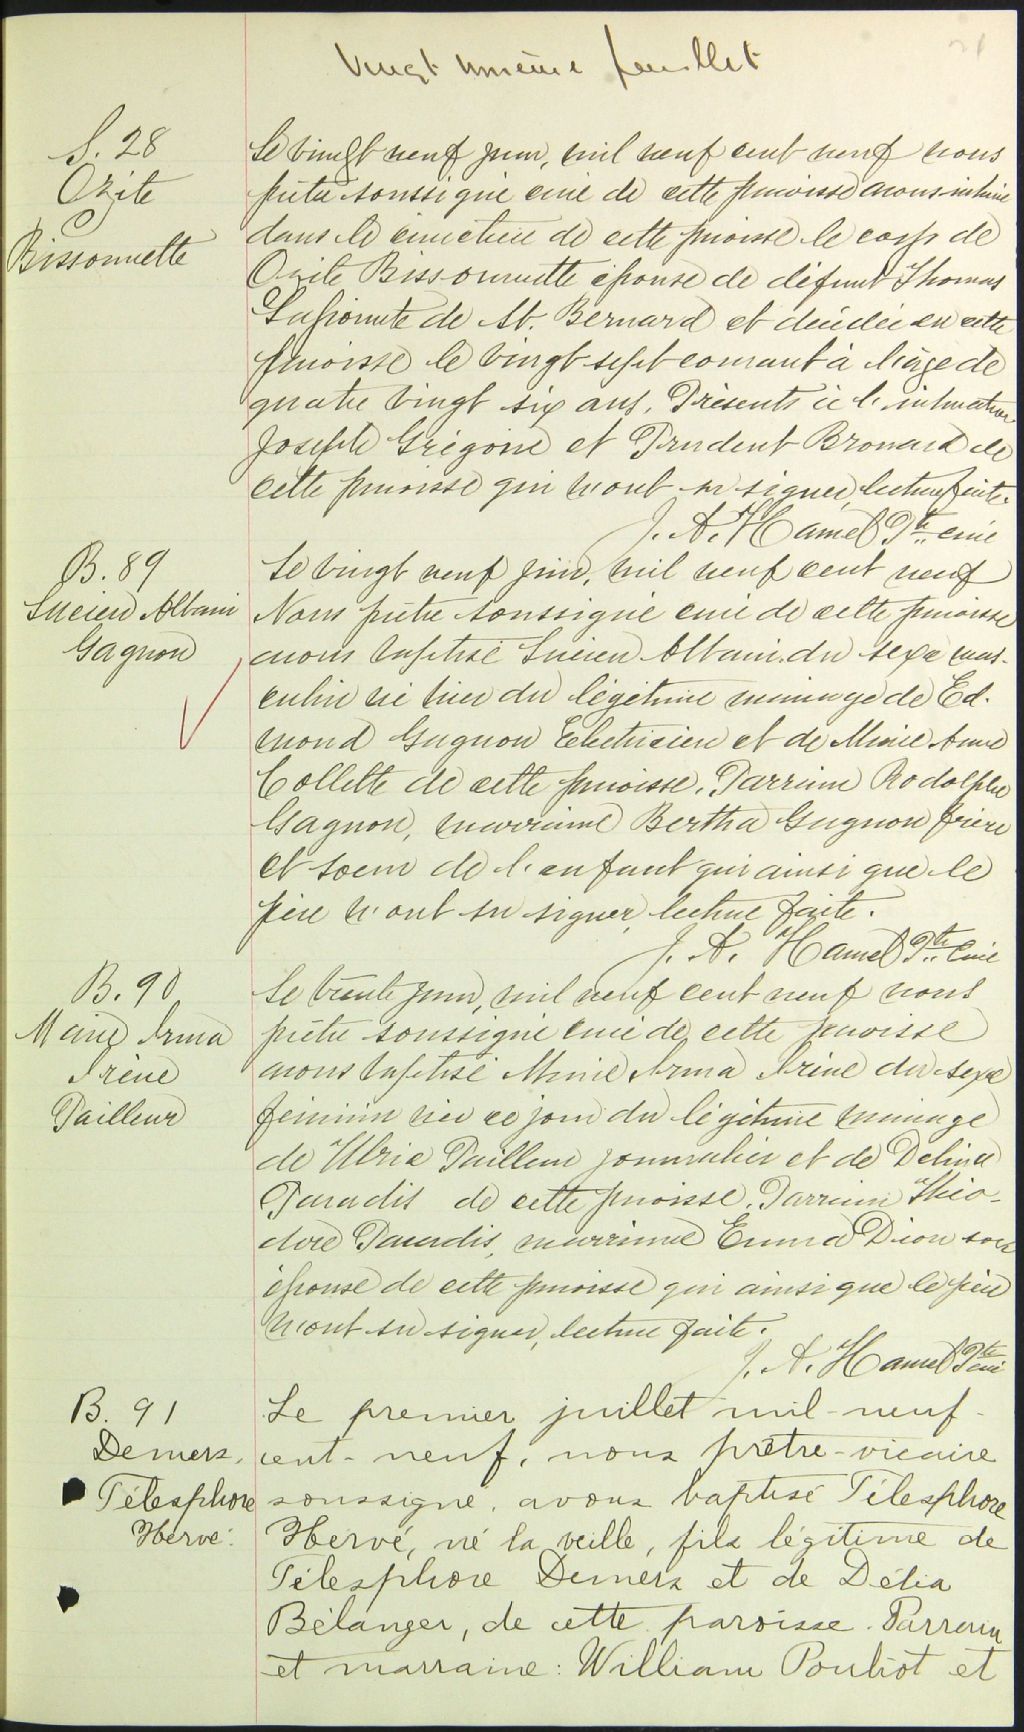 Vingt unième feuillet
21
S. 28
Ozite
Bissonnette
Le vingt neuf juin, mil neuf cent neuf nous
prêtre soussigné curé de cette paroisse avons inhumé
dans le cimetière de cette paroisse le corps de
Ozite Bissonnette épouse de défunt Thomas
Lapointe de St. Bernard et décédée en cette
paroisse le vingt sept courant à l'âge de
quatre vingt six ans. Présents à l'inhumation
Joseph Grégoire et Prudent Brouard de
cette paroisse qui n'ont su signer, lecture faite.
J. A. Hamel Ptre curé
B. 89
Lucien Albani
Gagnon
Le vingt neuf juin, mil neuf cent neuf
Nous prêtre soussigné curé de cette paroisse
avons baptisé Lucien Albani du sexe mas-
culin né hier du légitime mariage de Ed-
mond Gagnon Electricien et de Marie Anne
Collette de cette paroisse. Parrain Rodolphe
Gagnon, marraine Bertha Gagnon frère
et soeur de l'enfant qui ainsi que le
père n'ont su signer, lecture faite.
J. A. Hamel Ptre Curé
B. 90
Marie Irma
Irène
Tailleur
Le trente juin, mil neuf cent neuf nous
prêtre soussigné curé de cette paroisse
avons baptisé Marie Irma Irène du sexe
féminin née ce jour du légitime mariage
de Ulric Tailleur journalier et de Delina
Paradis de cette paroisse. Parrain Théo-
dore Paradis, marraine Emma Dion son
épouse de cette paroisse qui ainsi que le père
n'ont su signer, lecture faite.
J. A. Hamel Ptre curé
B. 91
Demers,
Télesphore
Hervé.
Le premier juillet mil-neuf-
cent-neuf, nous prêtre-vicaire
soussigné, avons baptisé Télesphore
Hervé, né la veille, fils légitime de
Télesphore Demers et de Délia
Bélanger, de cette paroisse. Parrain
et marraine: William Pouliot et